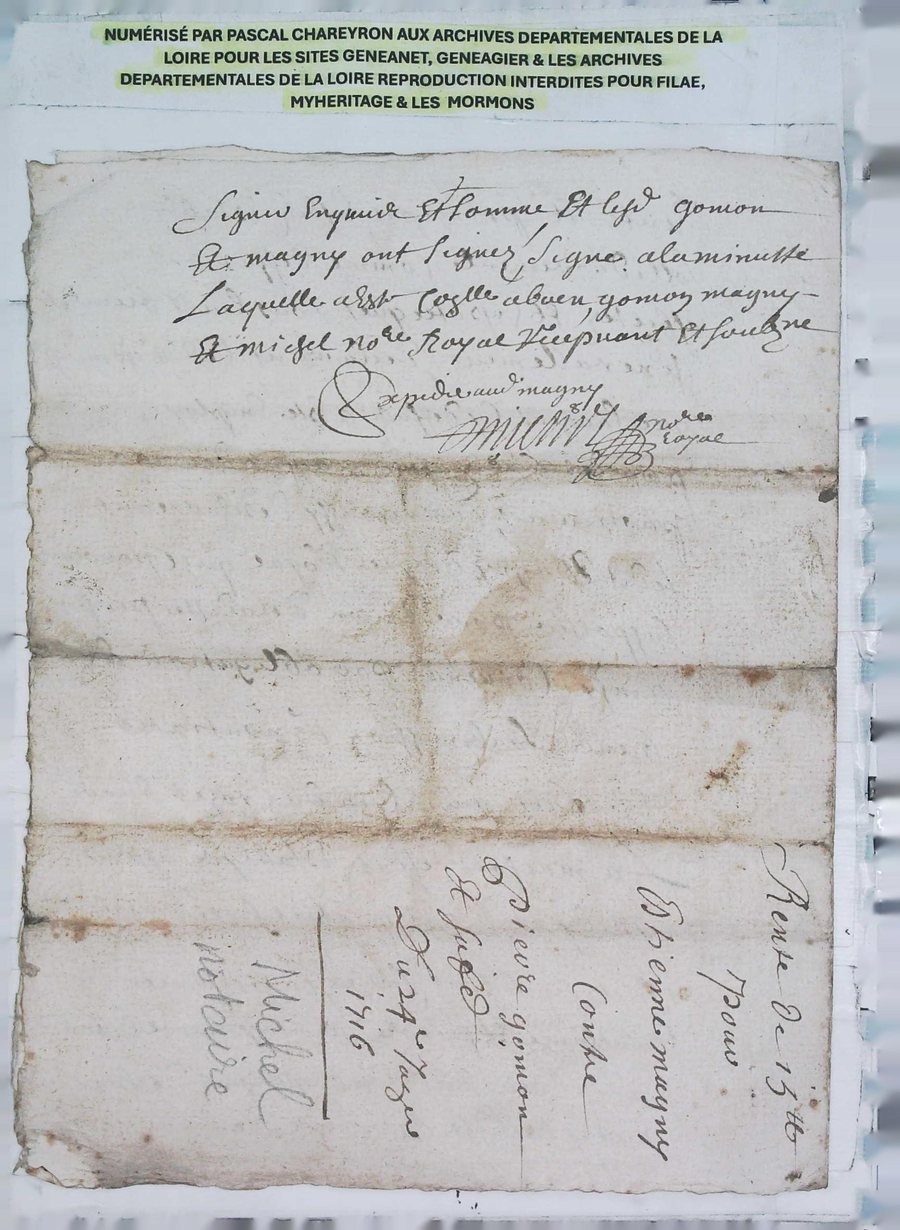 NUMÉRISÉ PAR PASCAL CHAREYRON AUX ARCHIVES DEPARTEMENTALES DE LA
LOIRE POUR LES SITES GENEANET, GENEAGIER & LES ARCHIVES
DEPARTEMENTALES DE LA LOIRE REPRODUCTION INTERDITES POUR FILAE,
MYHERITAGE & LES MORMONS
Signer Enquis Et Somme Et lesd gomon
Et magny ont Signez Signe alaminutte
Laquelle aboen gomon magny
Et michel nore Royal Recepuant Et soubzne
Expedié aud magny
nore
royal
Rente de 15tt
pour
Estienne magny
Contre
Pierre gomon
Et
Du 24e
1716
Michel
notaire